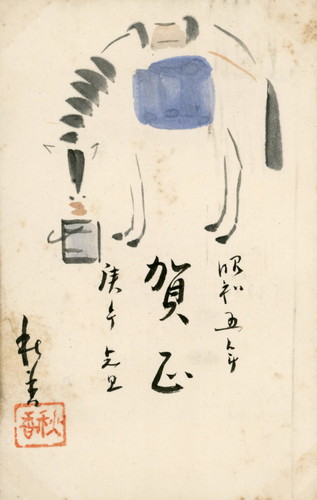 昭和五年
賀正
庚午元旦
秋香
秋香